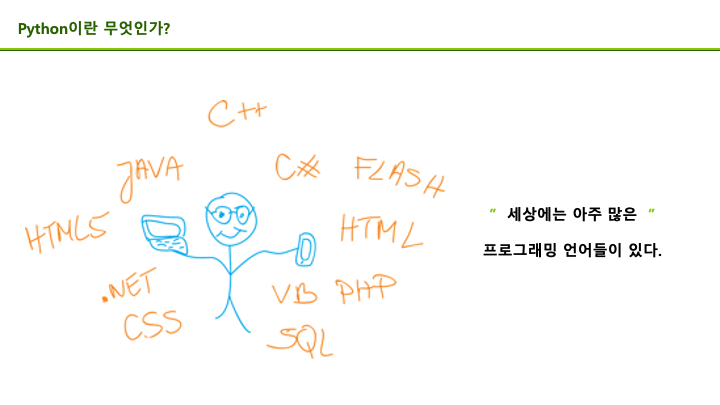 Python이란 무엇인가?
C++
JAVA
C#
FLASH
HTML5
HTML
.NET
VB
PHP
CSS
SQL
" 세상에는 아주 많은 "
프로그래밍 언어들이 있다.